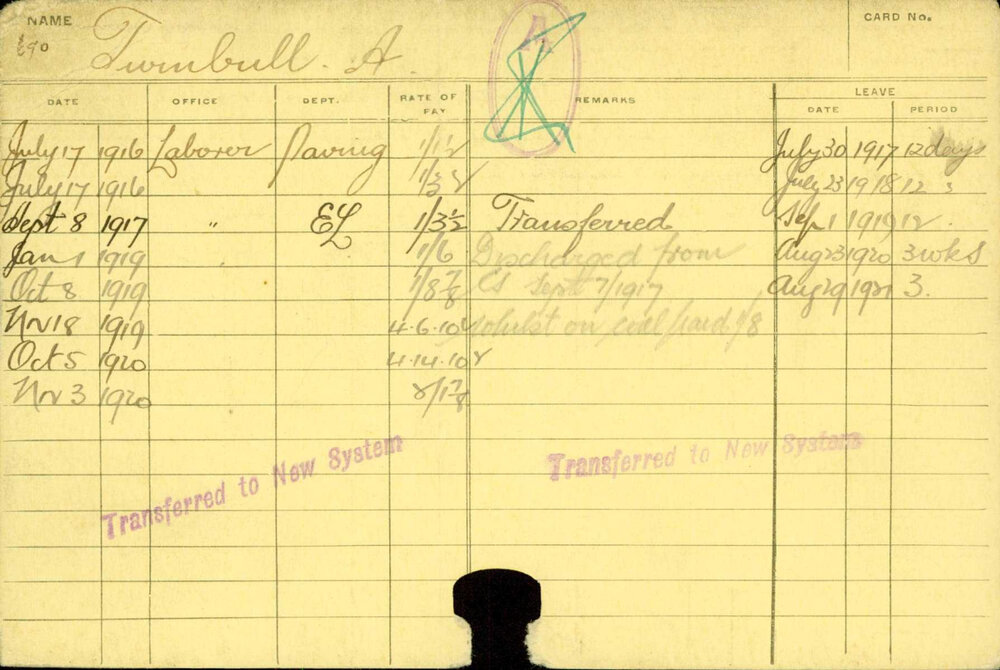 NAME CARD No.
Turnbull. A.
A
LEAVE
DATE OFFICE DEPT. RATE OF PAY REMARKS DATE PERIOD
July 17 1916 Laborer Paving 1/1½ July 30 1917 12 days
July 17 1916 July 23 1918 12 "
Sept 8 1917 " EL 1/3½ Transferred Sep 1 1919 12 "
Jan 1 1919 " 1/6 Discharged from Aug 23 1920 3 wks
Oct 8 1919 1/8⅞ Sept 7/1917 Aug 29 1921 3.
Nov 18 1919 4.6.10 whilst on coal
Oct 5 1920 4.14.10
Nov 3 1920 2/1⅞
Transferred to New System
Transferred to New System